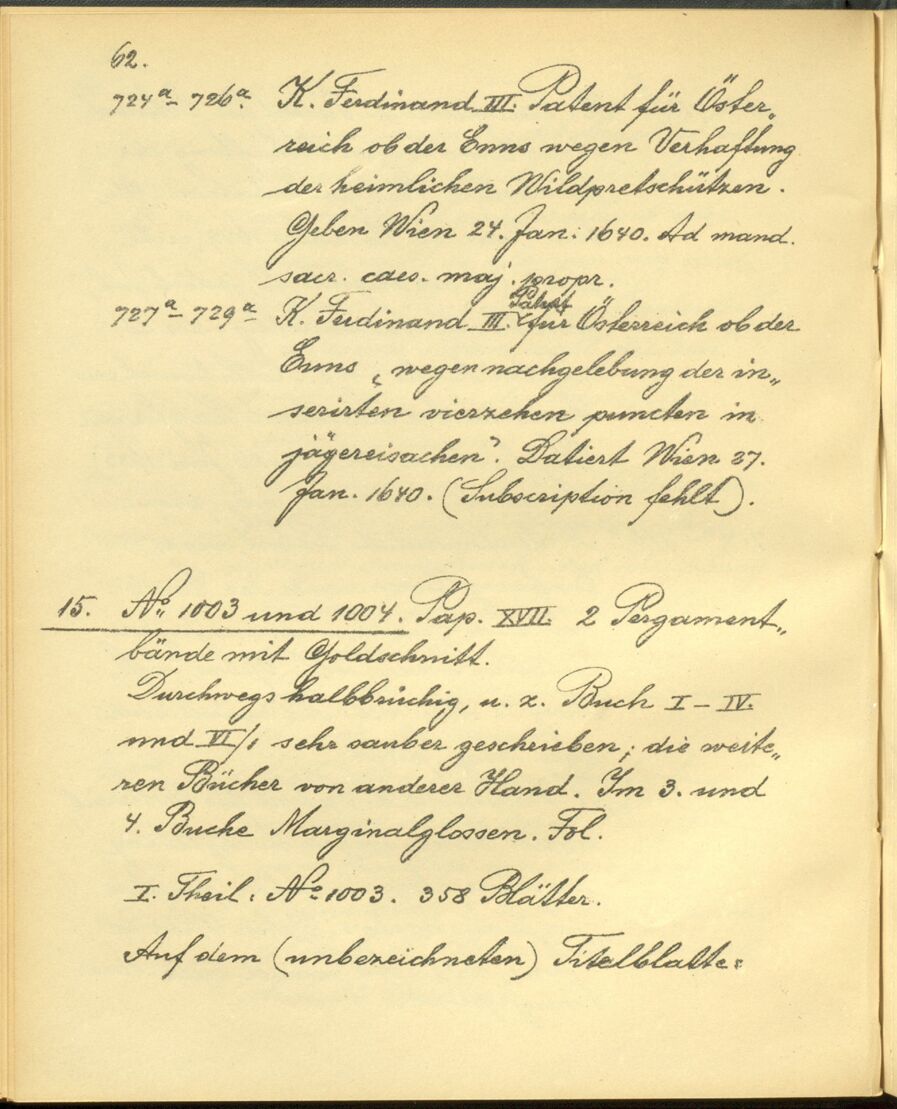 62.
724a – 726a. K. Ferdinand III. Patent für Öster„
reich ob der Enns wegen Verhaftung
der heimlichen Wildpretschützen.
Geben Wien 24. Jan. 1640. Ad mand.
sacr. caes. maj. propr.
Patent
727a – 729a K. Ferdinand III. für Österreich ob der
Enns „wegen nachgelebung der in„
serirten vierzehen puncten in
jägereisachen“. Datiert Wien 27.
Jan. 1640. (Subscription fehlt).
15. No. 1003 und 1004. Pap. XVII. 2 Pergament„
bände mit Goldschnitt.
Durchwegs halbbrüchig, u. z. Buch I – IV.
und VI/1 sehr sauber geschrieben; die weite„
ren Bücher von anderer Hand. Im 3. und
4. Buche Marginalglossen. Fol.
I. Theil. No 1003. 358 Blätter.
Auf dem (unbezeichneten) Titelblatte: